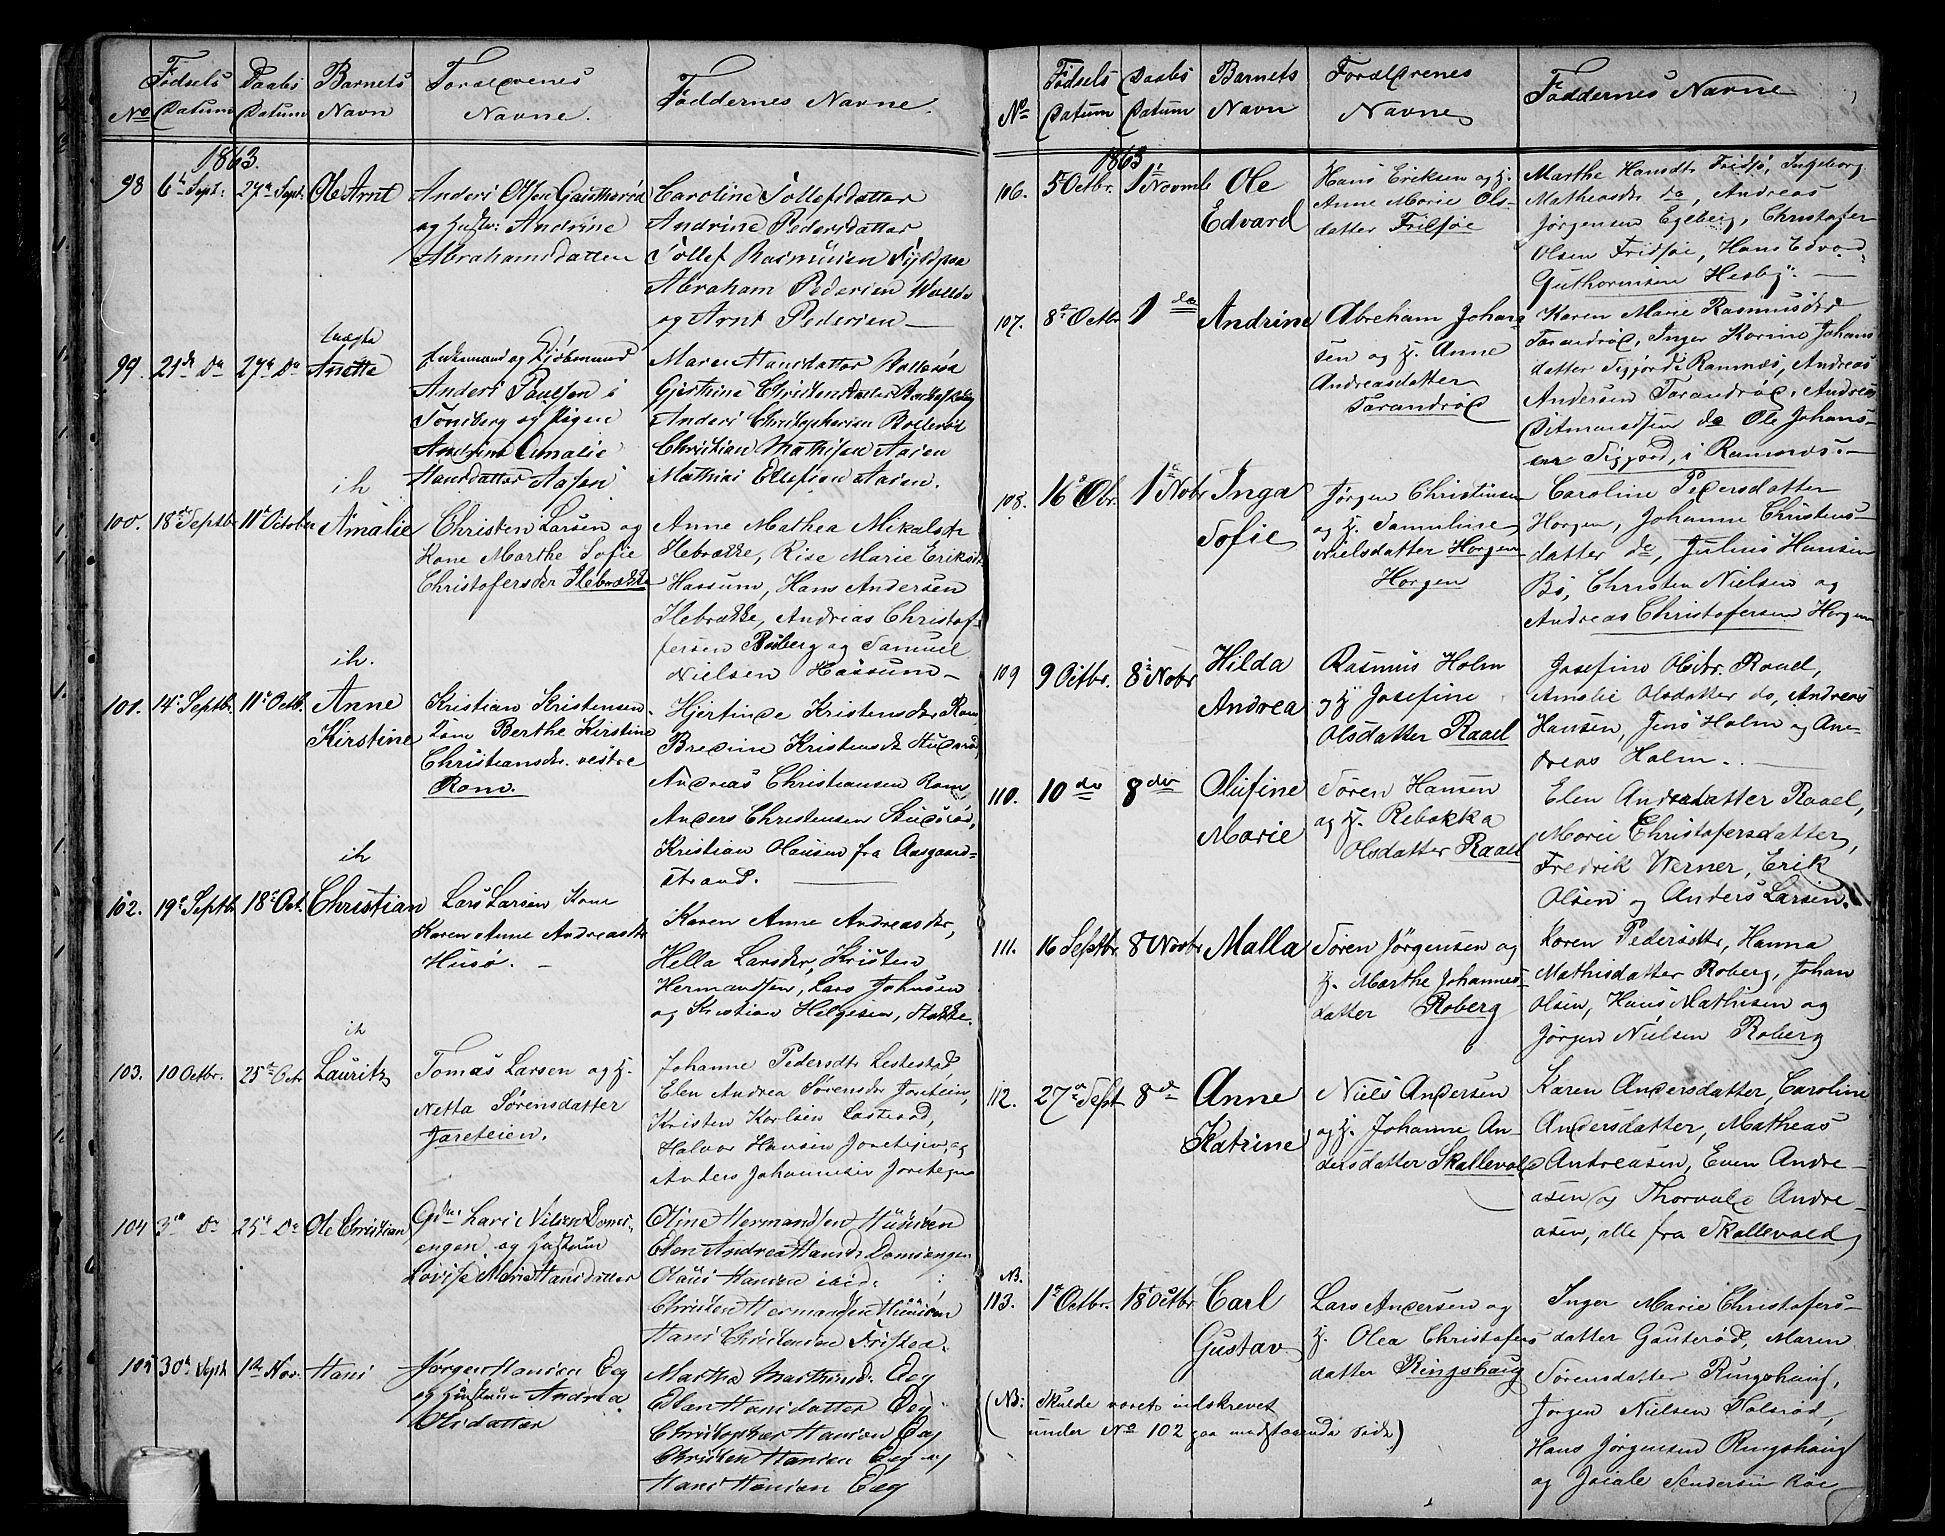 Fødsels Daabs Barnets Forældrenes Faddernes Navne.
No Datum Datum Navn Navne.
1863.
98 6te Sept: 27de Sept: Ole Arnt
Anders Olsen Gautherød
og Hustr: Andrine
Abrahamsdatter
Caroline Tollefsdatter
Andrine Pedersdatter
Tollef Rasmussen
Abraham Pedersen
og Arnt Pedersen
99. 21de Do 27de Do uægte Anetta
Enkemand og
Anders Paulsen i
Tønsberg og Pigen
Andrine Amalie
Hansdatter Aasen
Maren Hansdatter Bollerød
Gjertine Christensdatter
Anders Christophersen Bollerød
Christian Mathisen Aasen
Mathias Ellefsen Aasen.
100. 18de Septbr 11te October ih Amalie
Christen Larsen og
Kone Marthe Sofie
Christofersdr Ilebrække
Anne Mathea Mikalsdr
Ilebrække, Rise Marie Eriksdr
Hassum, Hans Andersen
Ilebrække, Andrias Christof-
fersen Roberg og Samuel
Nielsen Hassum
101. 14de Septbr. 11te Octb. ih. Anne Kirstine
Kristian Kristensen
Kone Berthe Kirstine
Christiansdr. vestre
Rom.
Kristensdr Rom
Bredine Kristensdr
Andreas Christiansen Rom
Anders Christensen
Kristian Hansen fra Aasgaard-
strand.
102. 19de Septbr 18de Oct. ih Christian
Lars Larsen Kone
Karen Anne Andreasdr
Husø.
Karen Anne Andreasdr,
Hella Larsdr, Kristen
Hermansen, Lars Johnsen
og Kristian Helgesen,
103. 10 Octbr. 25de Octr ih Lauritz
Tomas Larsen og H.
Netta Sørensdatter
Jareteien.
Johanne Pedersdr
Elen Andrea Sørensdr Jareteien,
Kristen Karlsen
Halvor Hansen Jareteien og
Anders Johannesen
104 3die Do 25de Do Ole Christian
Lars Nilsen Doms-
engen og Hustrue
Lovise Marie Hansdatter
Oline Hermandsen
Elen Andrea Hansdr Domsengen
Olaus Hansen ibid:
Christen Hermandsen
Hans Christensen
105 30te Sept 1ste Nov. Hans
Jørgen Hansen Eeg
og Hustrue Andrea
Olsdatter
Martha Mathisd: Eeg
Elen Hansdatter Eeg
Christopher Hansen Eeg
Christen Hansen Eeg og
Hans Hansen Eeg
Fødsels Daabs Barnets Forældrenes Faddernes Navne
No Datum Datum Navn Navne
1863
106. 5te Octbr. 1ste Novmb Ole Edvard
Hans Eriksen og H.
Anne Marie Ols-
datter Frilsøe
Marthe Hansdtr Fridsø, Ingeborg
Matheasdr do, Andreas
Jørgensen Egeberg, Christofer
Olsen Fridsøe, Hans Edvard
Guthormsen Hesby.
107. 8de Octbr 1 do Andrine
Abreham Johan-
sen og H. Anne
Andreasdatter
Tarandrød
Karen Marie Rasmusdr
Tarandrød, Inger Karine Johans
datter i Ramnæs, Andreas
Andersen Tarandrød, Andreas
Ditmandsen do Ole Johan-
sen i Ramnæs.
108. 16de Obr. 1ste Nobr Inga Sofie
Jørgen Christensen
og H. Samuline
Nielsdatter Horgen
Horgen
Caroline Pedersdatter
Horgen, Johanne Christens-
datter do, Julius Hansen
Bø, Christen Nielsen og
Andreas Christofersen Horgen
109 9 Octbr. 8de Nobr Hilda Andrea
Rasmus Holm
og H Josefine
Olsdatter Raael
Josefine Olsdtr. Raael,
Amalie Olsdatter do, Andreas
Hansen, Jens Holm og An-
dreas Holm.
110. 10 do 8 do Olufine Marie
Søren Hansen
og H. Rebekka
Olsdatter Raael
Elen Andersdatter Raael,
Marie Christofersdatter,
Fredrik Werner, Erik
Olsen og Anders Larsen.
111. 16 Septbr 8 Novbr Malla
Søren Jørgensen og
H. Marthe Johannes-
datter Roberg
Karen Pedersdtr, Hanna
Mathisdatter Roberg, Johan
Olsen, Hans Mathisen og
Jørgen Nielsen Roberg
112. 27de Sept 8de Anne Katrine
Niels Andersen
og H. Johanne An-
dersdatter Skallevold
Karen Andersdatter, Caroline
Andersdatter, Matheas
Andreasen, Even Andre-
asen og Thorvald Andre-
asen, alle fra Skallevold
NB.
113. 1ste Octbr. 18de Octbr Carl Gustav
Lars Andersen og
H. Olea Christofers
datter Ringshaug
Inger Marie Christofers-
datter Gauterød, Maren
Sørensdatter Ringshaug,
Jørgen Nielsen Holsrød,
Hans Jørgensen Ringshaug
og
(NB: Skulde været indskrevet
under No 102 paa modstaaende Side.)